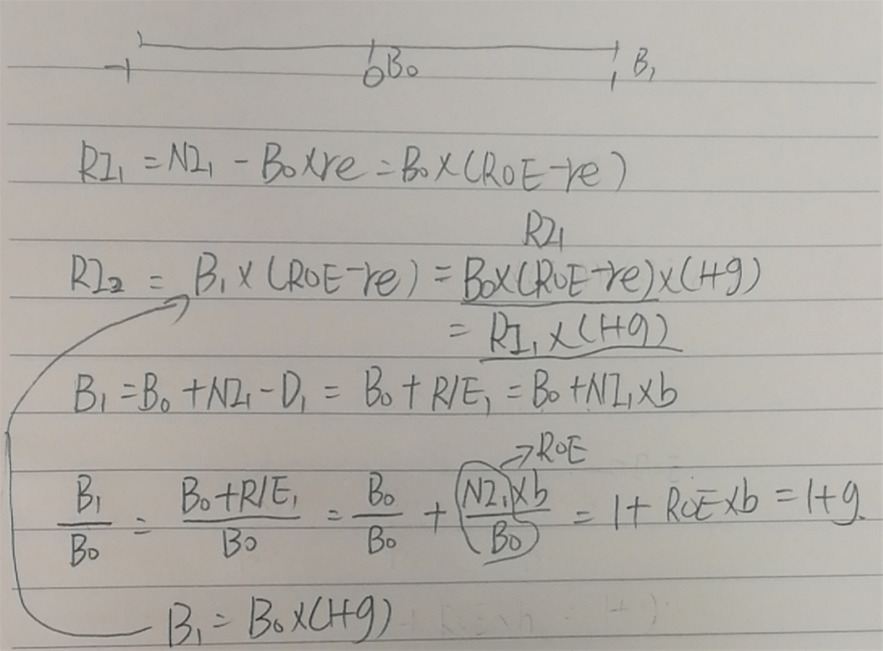 -1 0 B₀ 1 B₁
RI₁ = NI₁ - B₀×re = B₀×(ROE-re)
RI₁
RI₂ = B₁×(ROE-re) = B₀×(ROE-re)×(1+g)
= RI₁×(1+g)
B₁ = B₀ + NI₁ - D₁ = B₀ + R/E₁ = B₀ + NI₁×b
→ROE
B₁/B₀ = (B₀+R/E₁)/B₀ = B₀/B₀ + (NI₁×b)/B₀ = 1 + ROE×b = 1+g
B₁ = B₀×(1+g)